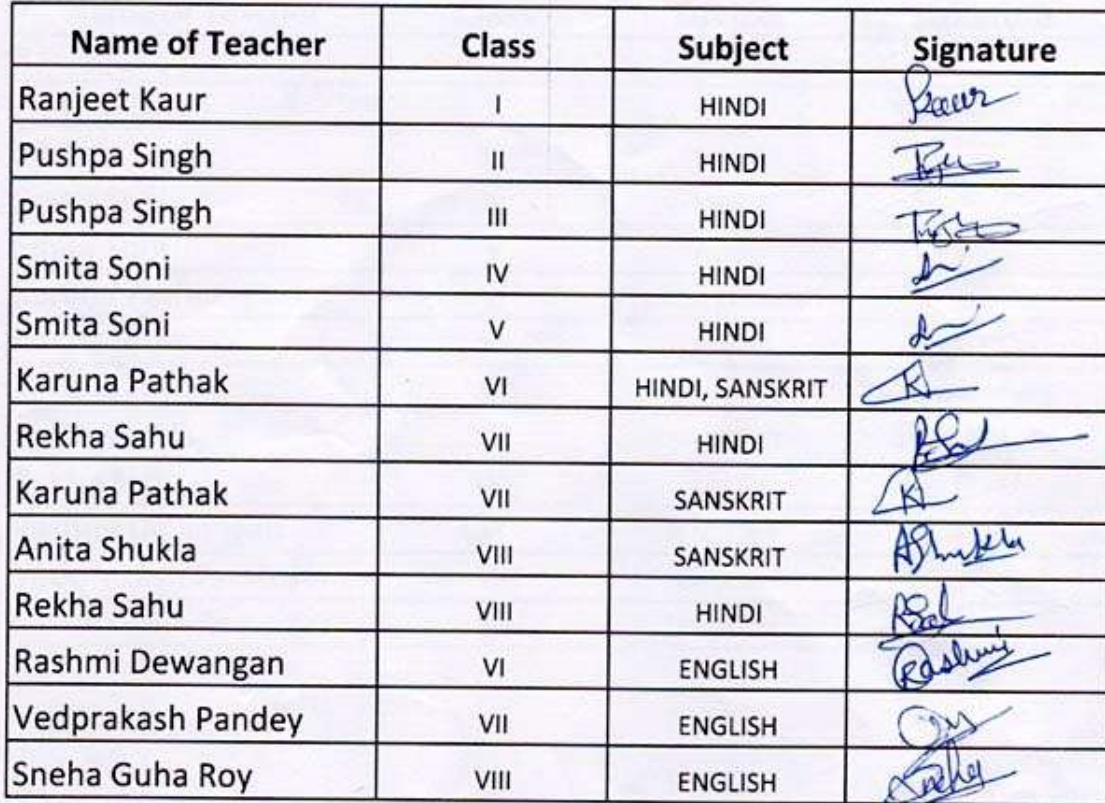 Name of Teacher Class Subject Signature
Ranjeet Kaur I HINDI Kaur
Pushpa Singh II HINDI
Pushpa Singh III HINDI
Smita Soni IV HINDI
Smita Soni V HINDI
Karuna Pathak VI HINDI, SANSKRIT K
Rekha Sahu VII HINDI
Karuna Pathak VII SANSKRIT K
Anita Shukla VIII SANSKRIT AShukla
Rekha Sahu VIII HINDI
Rashmi Dewangan VI ENGLISH Rashmi
Vedprakash Pandey VII ENGLISH
Sneha Guha Roy VIII ENGLISH Sneha